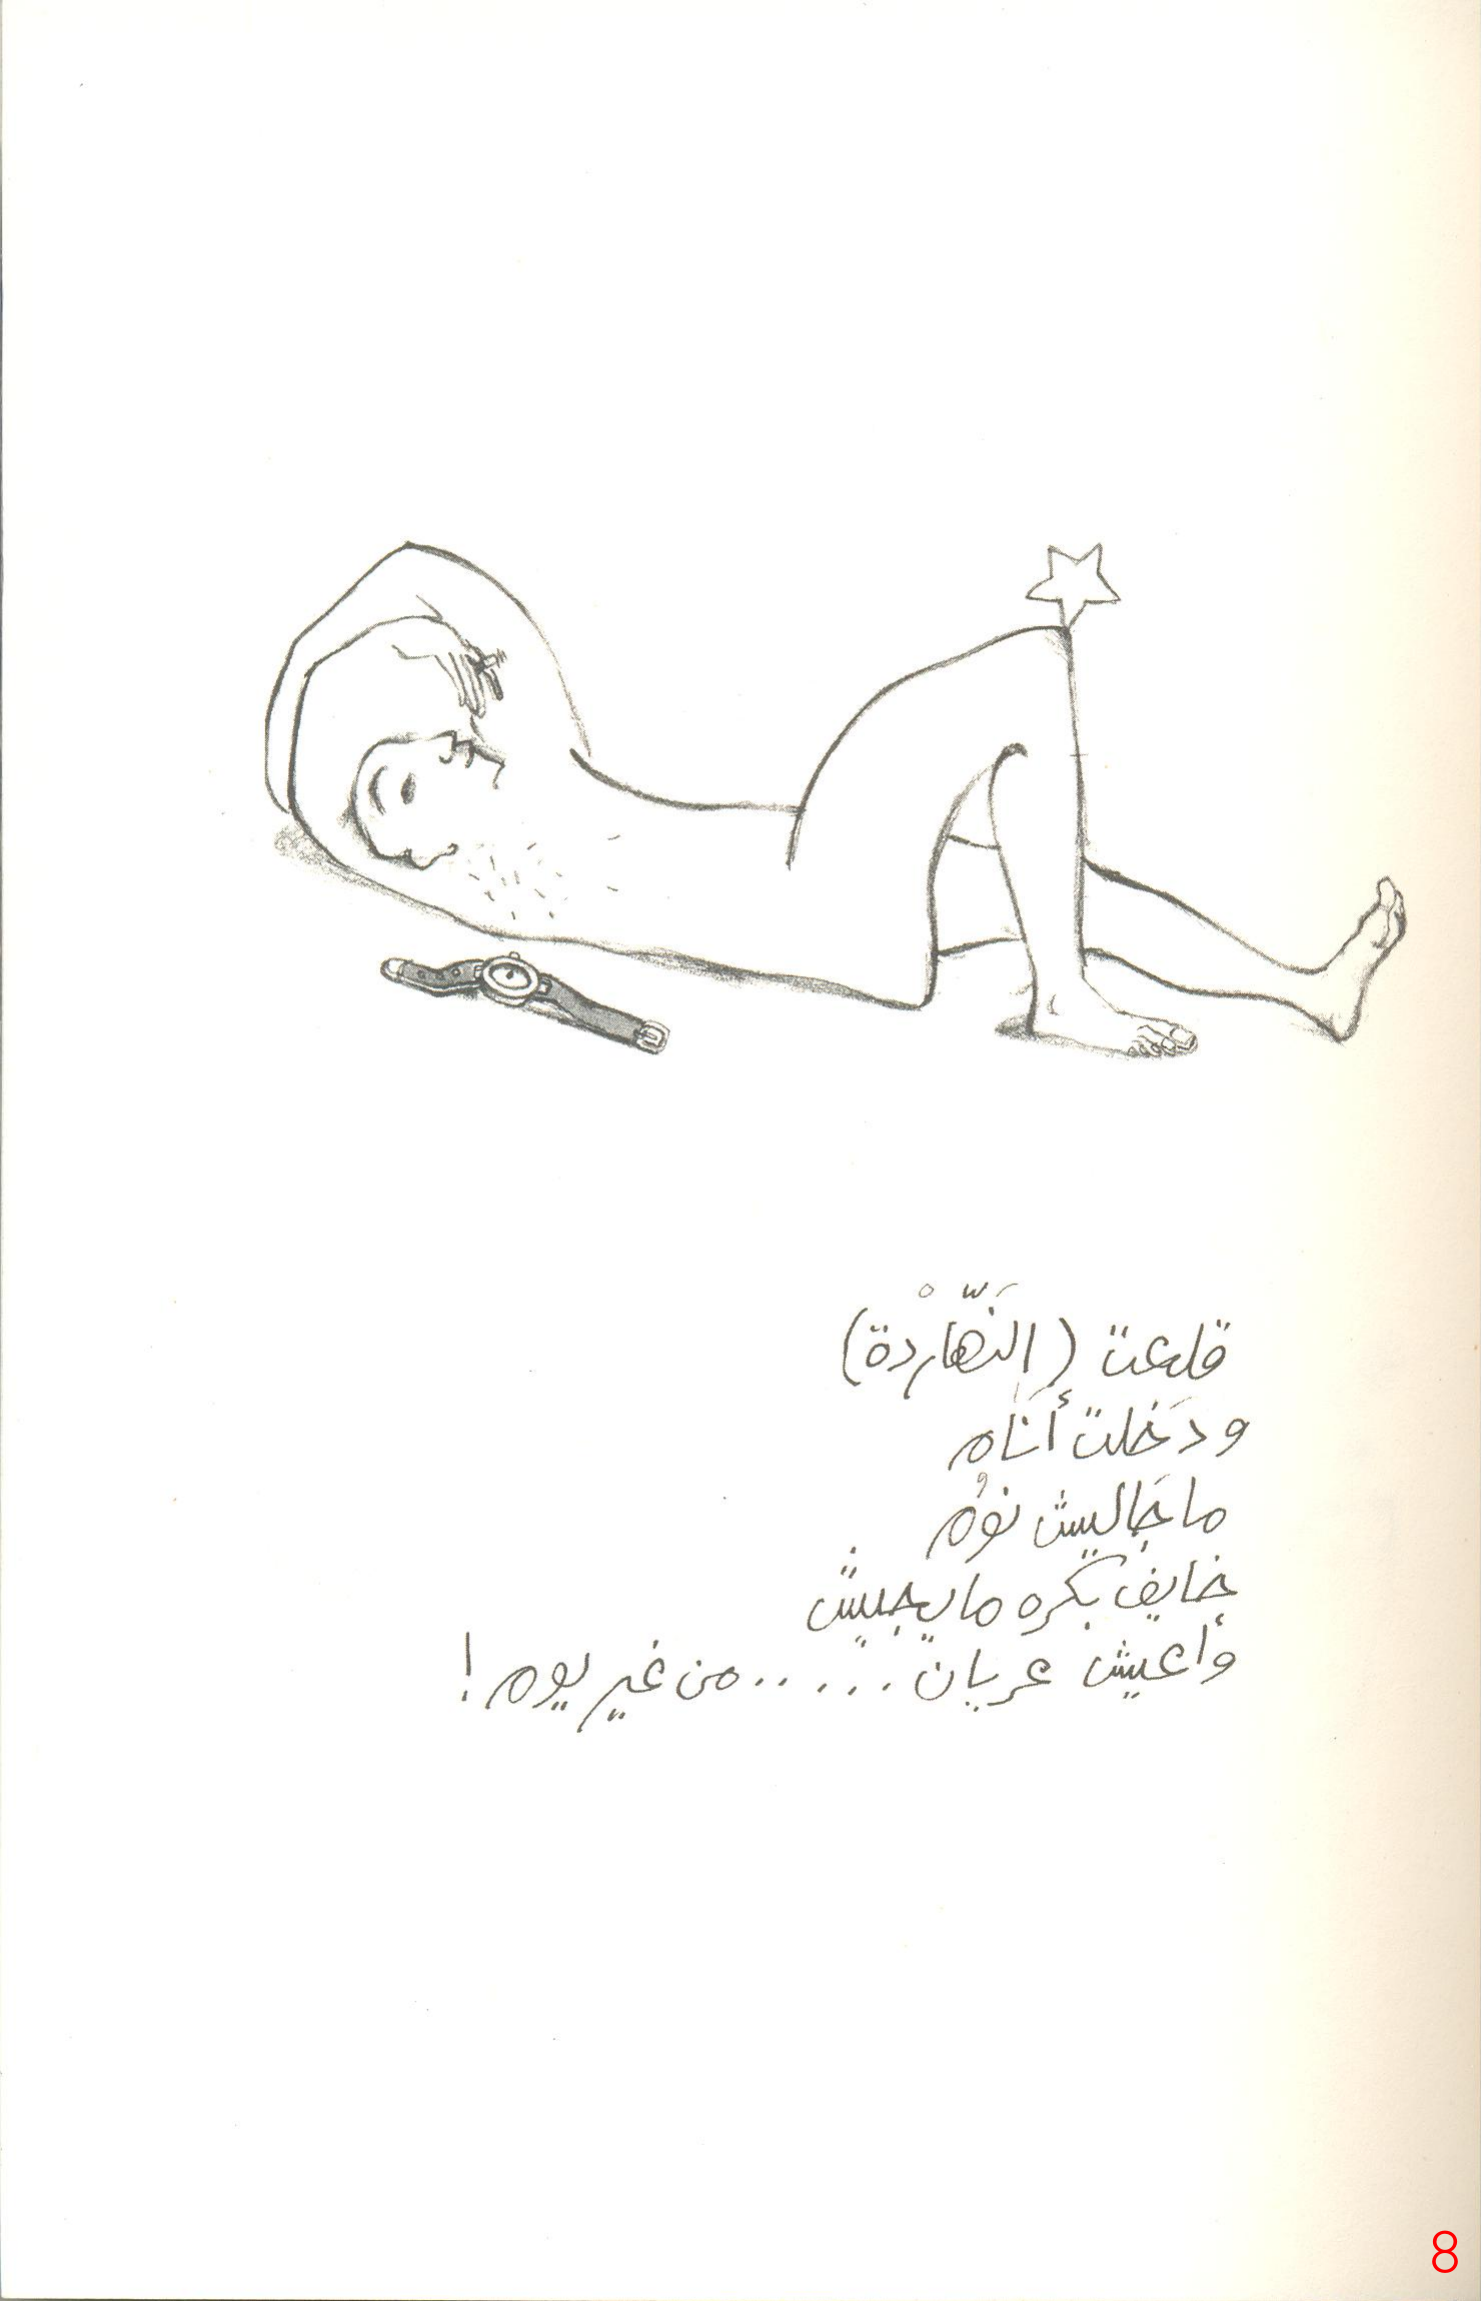 قلعت (النَّهارْدة)
ودَخلت أَنَام
ماجَاليش نوُم
خايف بُكره مايجيش
وأعيش عريان ..... من غير يوم !
8